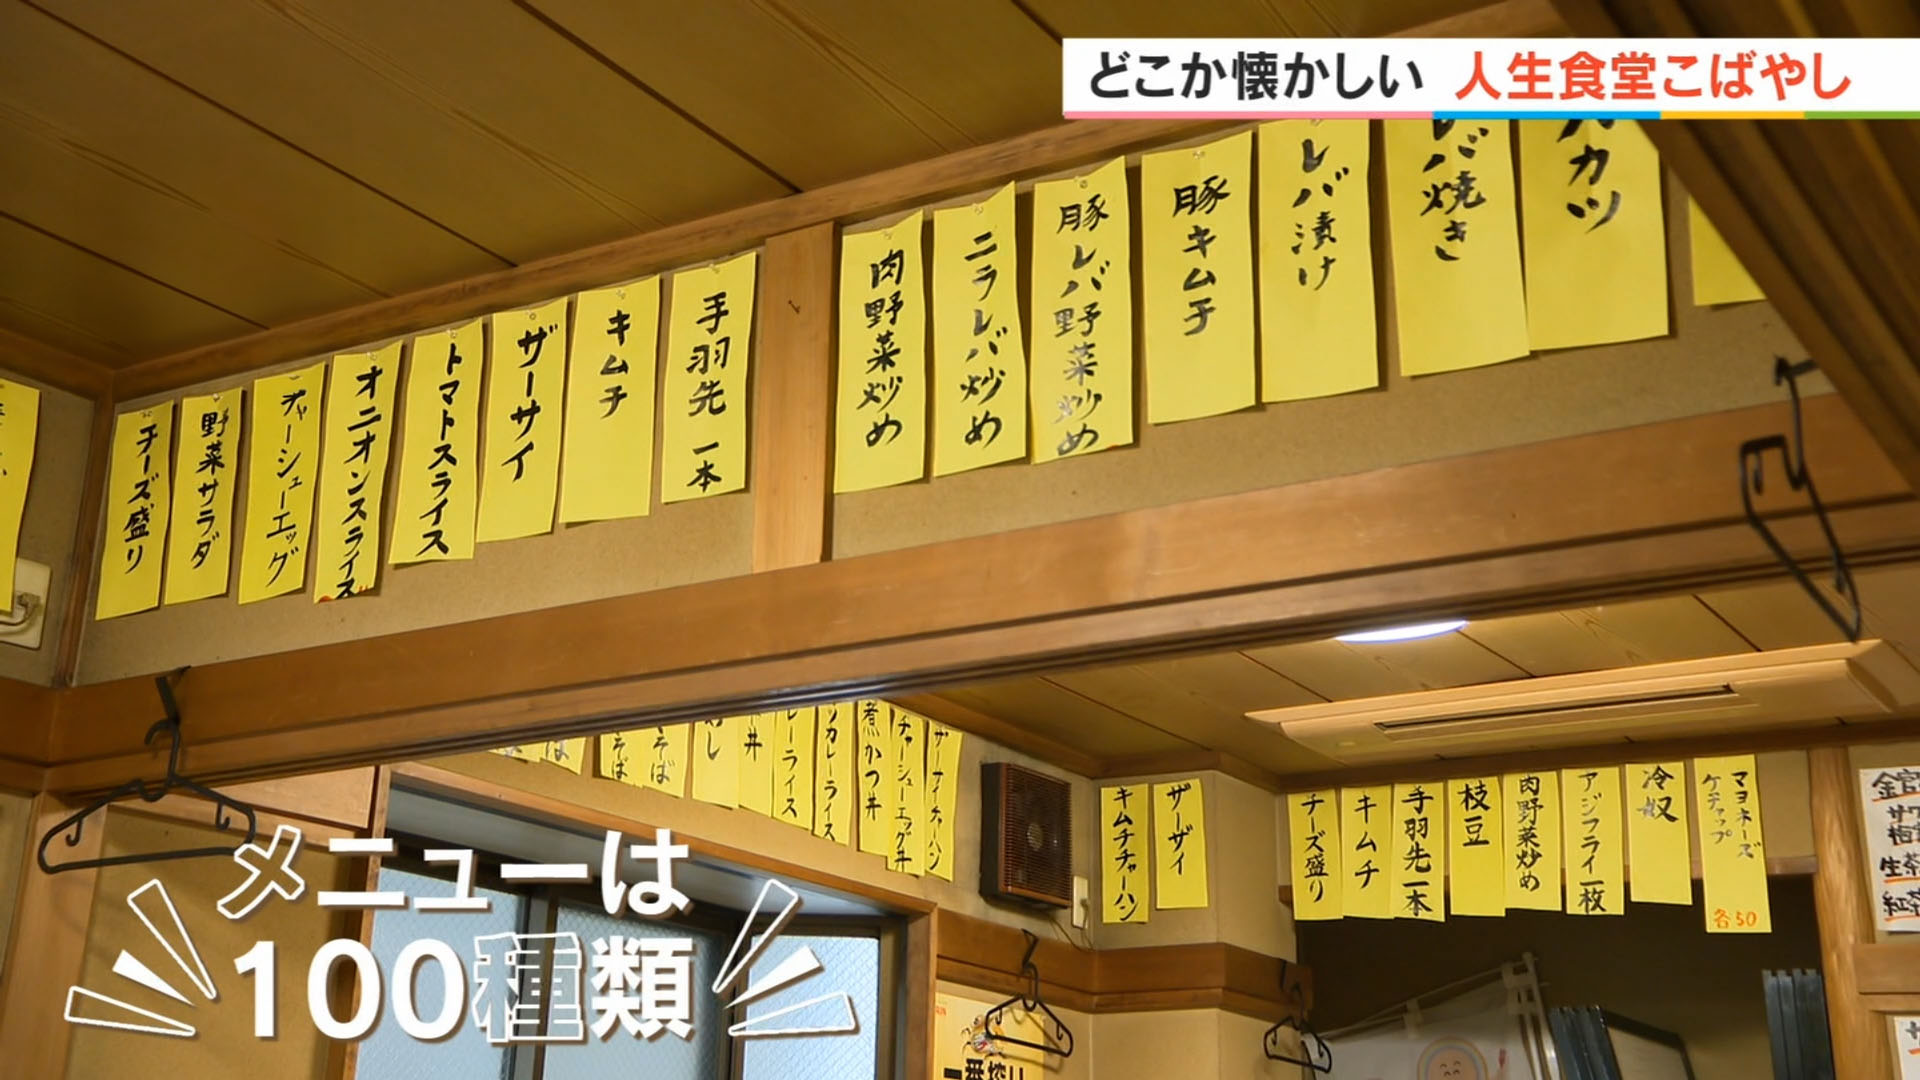 どこか懐かしい 人生食堂こばやし
チーズ盛り
野菜サラダ
チャーシューエッグ
オニオンスライス
トマトスライス
ザーサイ
キムチ
手羽先 一本
肉野菜炒め
ニラレバ炒め
豚レバ野菜炒め
豚キムチ
レバ漬け
レバ焼き
カツ
そば
そば
丼
カレーライス
煮かつ丼
チャーシューエッグ丼
ザーサイチャーハン
キムチチャーハン
ザーザイ
チーズ盛り
キムチ
手羽先一本
枝豆
肉野菜炒め
アジフライ一枚
冷奴
マヨネーズ
ケチャップ
各50
メニューは
100種類